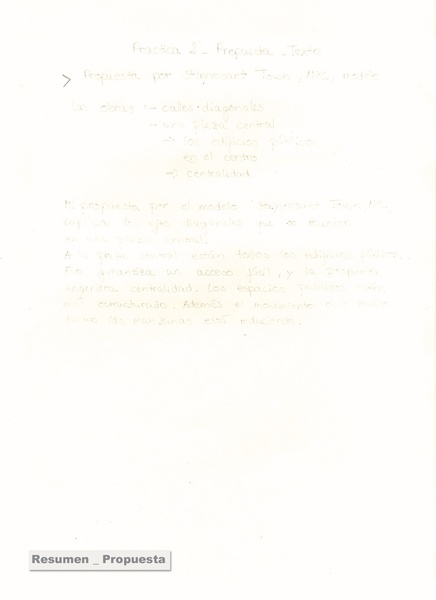 Practica 2 _ Propuesta _ Texto
> Propuesta por Stuyvesant Town, NYC, modelo
Las obras: → calles diagonales
→ una plaza central
→ los edificios públicos
en el centro
→ centralidad
Mi propuesta por el modelo Stuyvesant Town NYC,
diagonales que se
en una plaza central.
A la plaza central están todos los edificios públicos.
Eso garantiza un acceso fácil, y la propuesta
engendra centralidad. Los espacios públicos están
más estructurado. Además el movimiento
las manzanas está reduciendo.
Resumen _ Propuesta